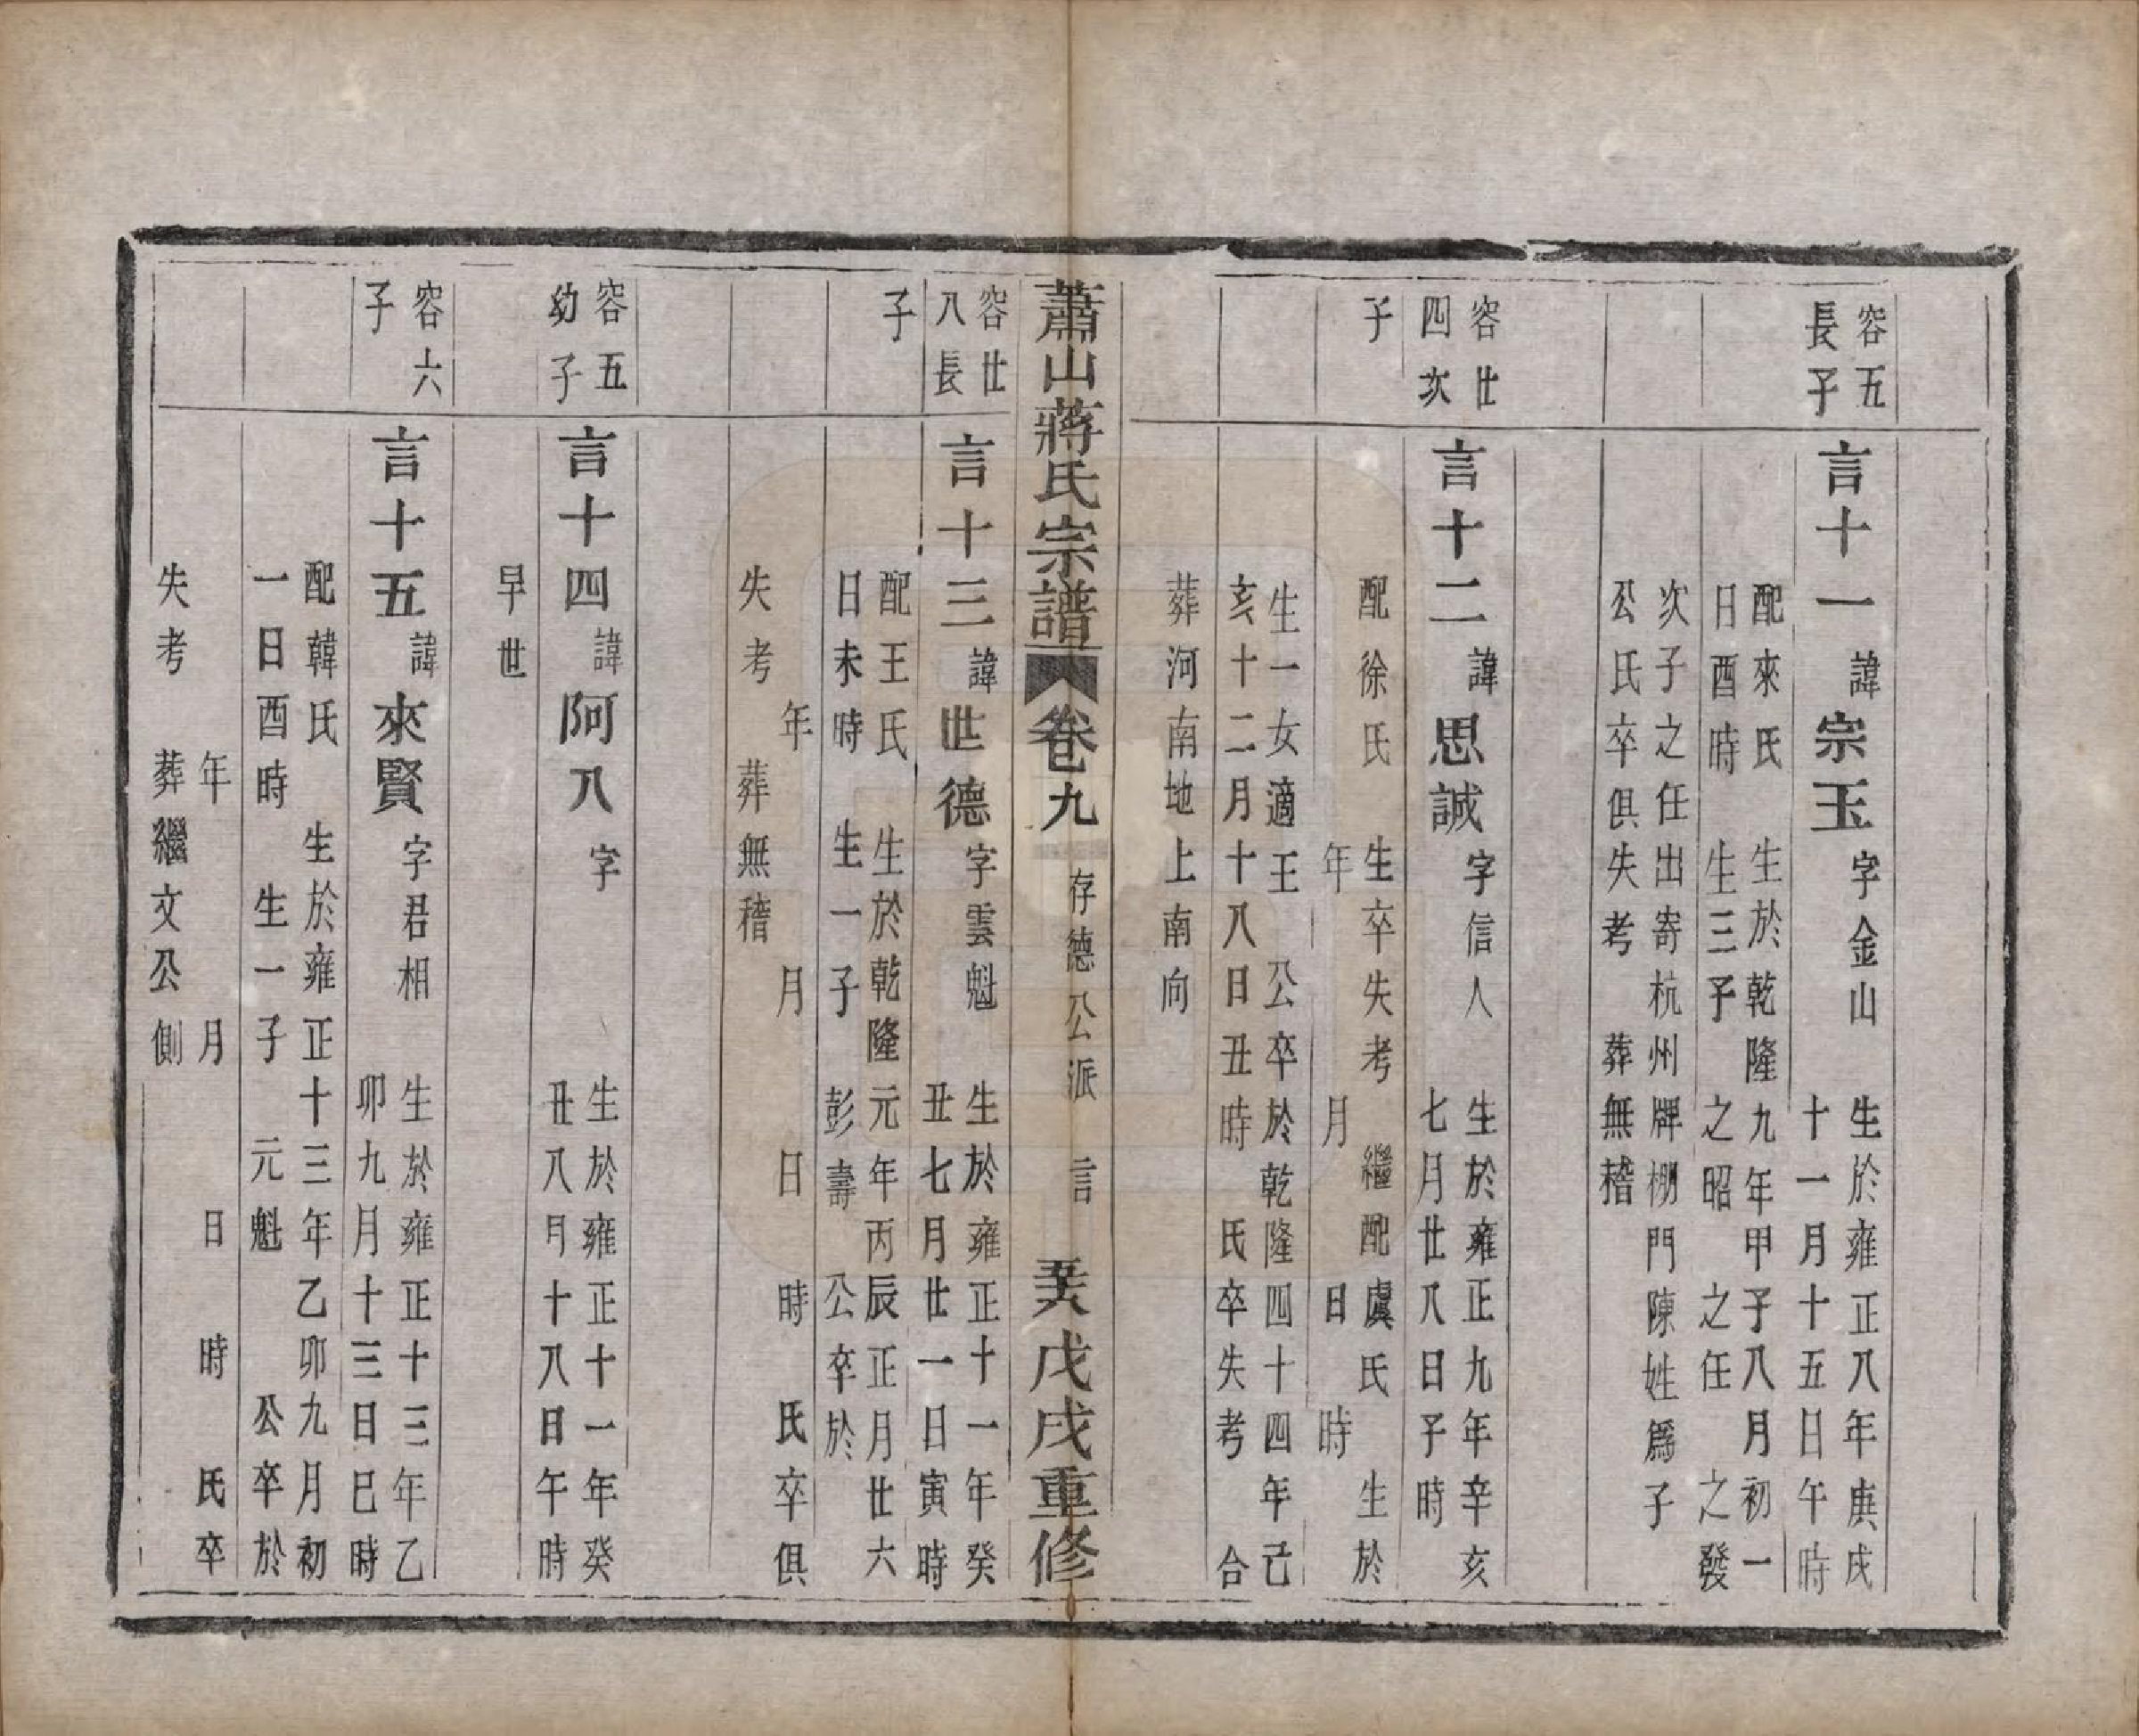 容五
長子
言十一
諱
宗玉
字金山
生於雍正八年庚戌
十一月十五日午時
配來氏 生於乾隆九年甲子八月初一
日酉時 生三子 之昭 之任 之發
次子之任出寄杭州牌棚門陳姓爲子
公氏卒俱失考 葬無稽
容世
四次
子
言十二
諱
思誠
字信人
生於雍正九年辛亥
七月廿八日子時
配徐氏 生卒失考 繼配虞氏 生於
年 月 日 時
生一女適王 公卒於乾隆四十四年己
亥十二月十八日丑時 氏卒失考 合
葬河南地上南向
蕭山蔣氏宗譜 卷九 存德公派 言 戊戌重修
容世
八長
子
言十三
諱
世德
字雲魁
生於雍正十一年癸
丑七月廿一日寅時
配王氏 生於乾隆元年丙辰正月廿六
日未時 生一子 彭壽 公卒於
年 月 日 時 氏卒俱
失考 葬無稽
容五
幼子
言十四
諱
阿八
字
生於雍正十一年癸
丑八月十八日午時
早世
容六
子
言十五
諱
來賢
字君相
生於雍正十三年乙
卯九月十三日巳時
配韓氏 生於雍正十三年乙卯九月初
一日酉時 生一子 元魁 公卒於
年 月 日 時 氏卒
失考 葬繼文公側